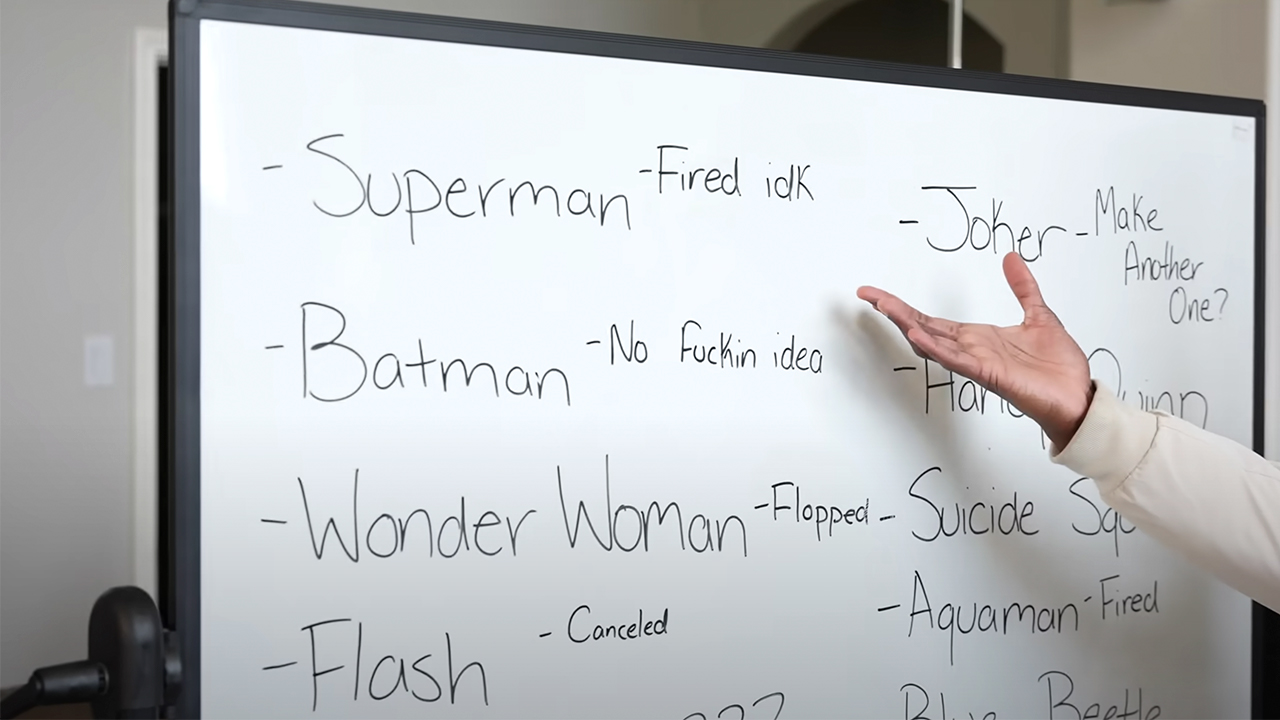 - Superman - Fired idk
- Batman - No Fuckin idea
- Wonder Woman - Flopped
- Flash - Canceled
???
- Joker - Make
Another
One?
- Suicide
- Aquaman - Fired
Blue Beetle